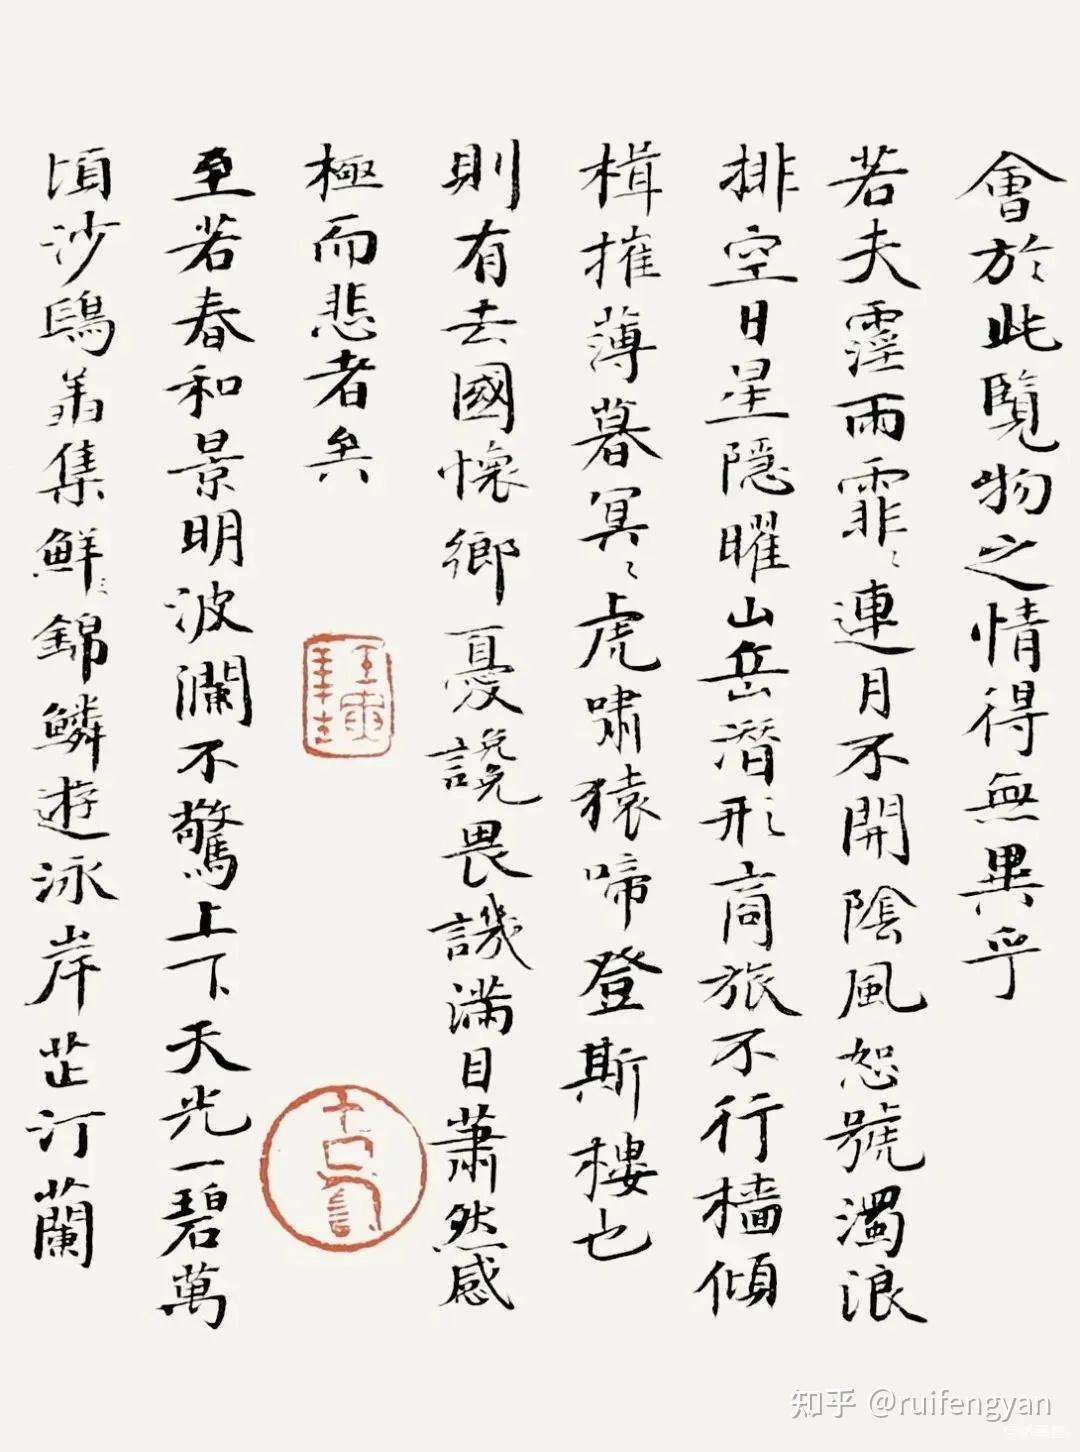 會於此覽物之情得無異乎
若夫霪雨霏〻連月不開陰風怒號濁浪
排空日星隱曜山岳潛形商旅不行檣傾
楫摧薄暮冥〻虎嘯猿啼登斯樓也
則有去國懷鄉憂讒畏譏滿目蕭然感
極而悲者矣
至若春和景明波瀾不驚上下天光一碧萬
頃沙鷗翔集鮮〻錦鱗遊泳岸芷汀蘭
知乎 @ruifengyan